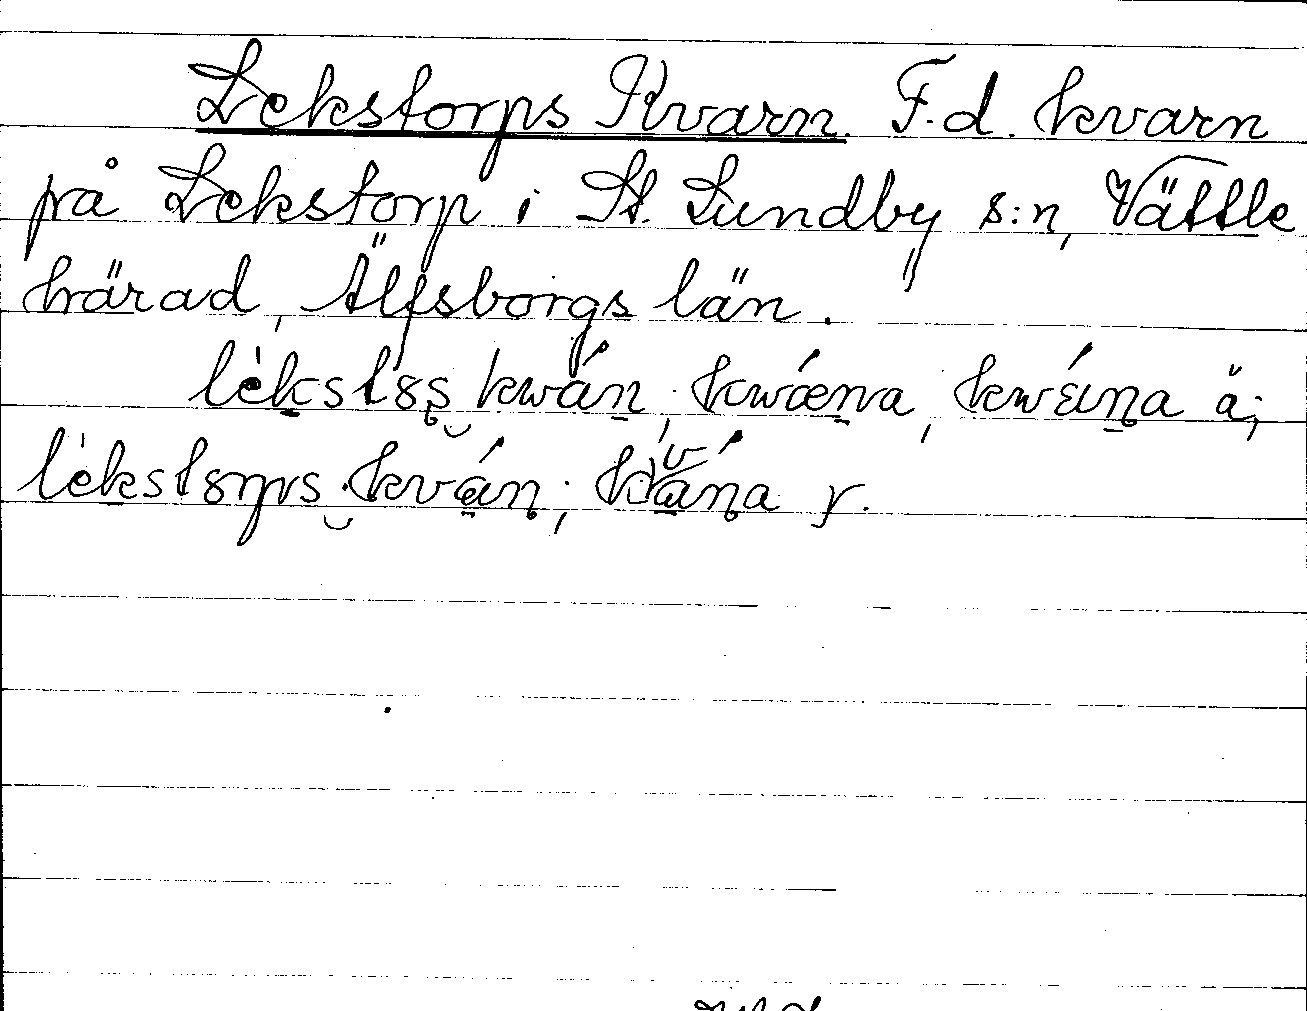 Lekstorps Kvarn. F.d. kvarn
på Lekstorp i St. Lundby s:n, Vättle
härad, Älfsborgs län.
lèkstss kwán, kwǽna, kwɛ́ına ä;
lèkstorps kván; kvána y.